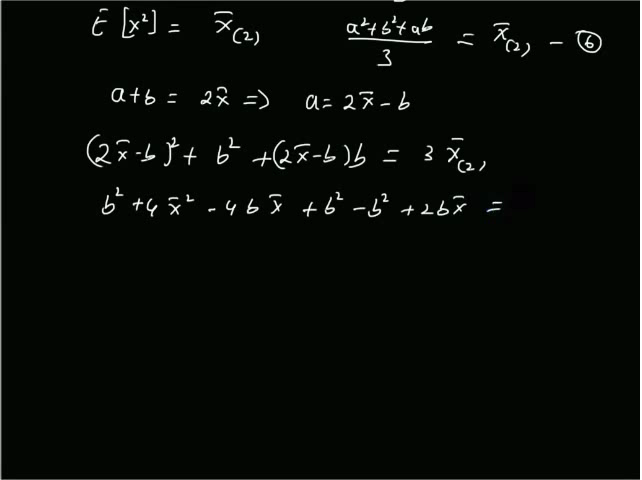 E[x²] = x̄₍₂₎   (a²+b²+ab)/3 = x̄₍₂₎ - ⑥
a+b = 2x̄ => a = 2x̄-b
(2x̄-b)² + b² + (2x̄-b)b = 3 x̄₍₂₎
b² + 4x̄² - 4bx̄ + b² - b² + 2bx̄ =